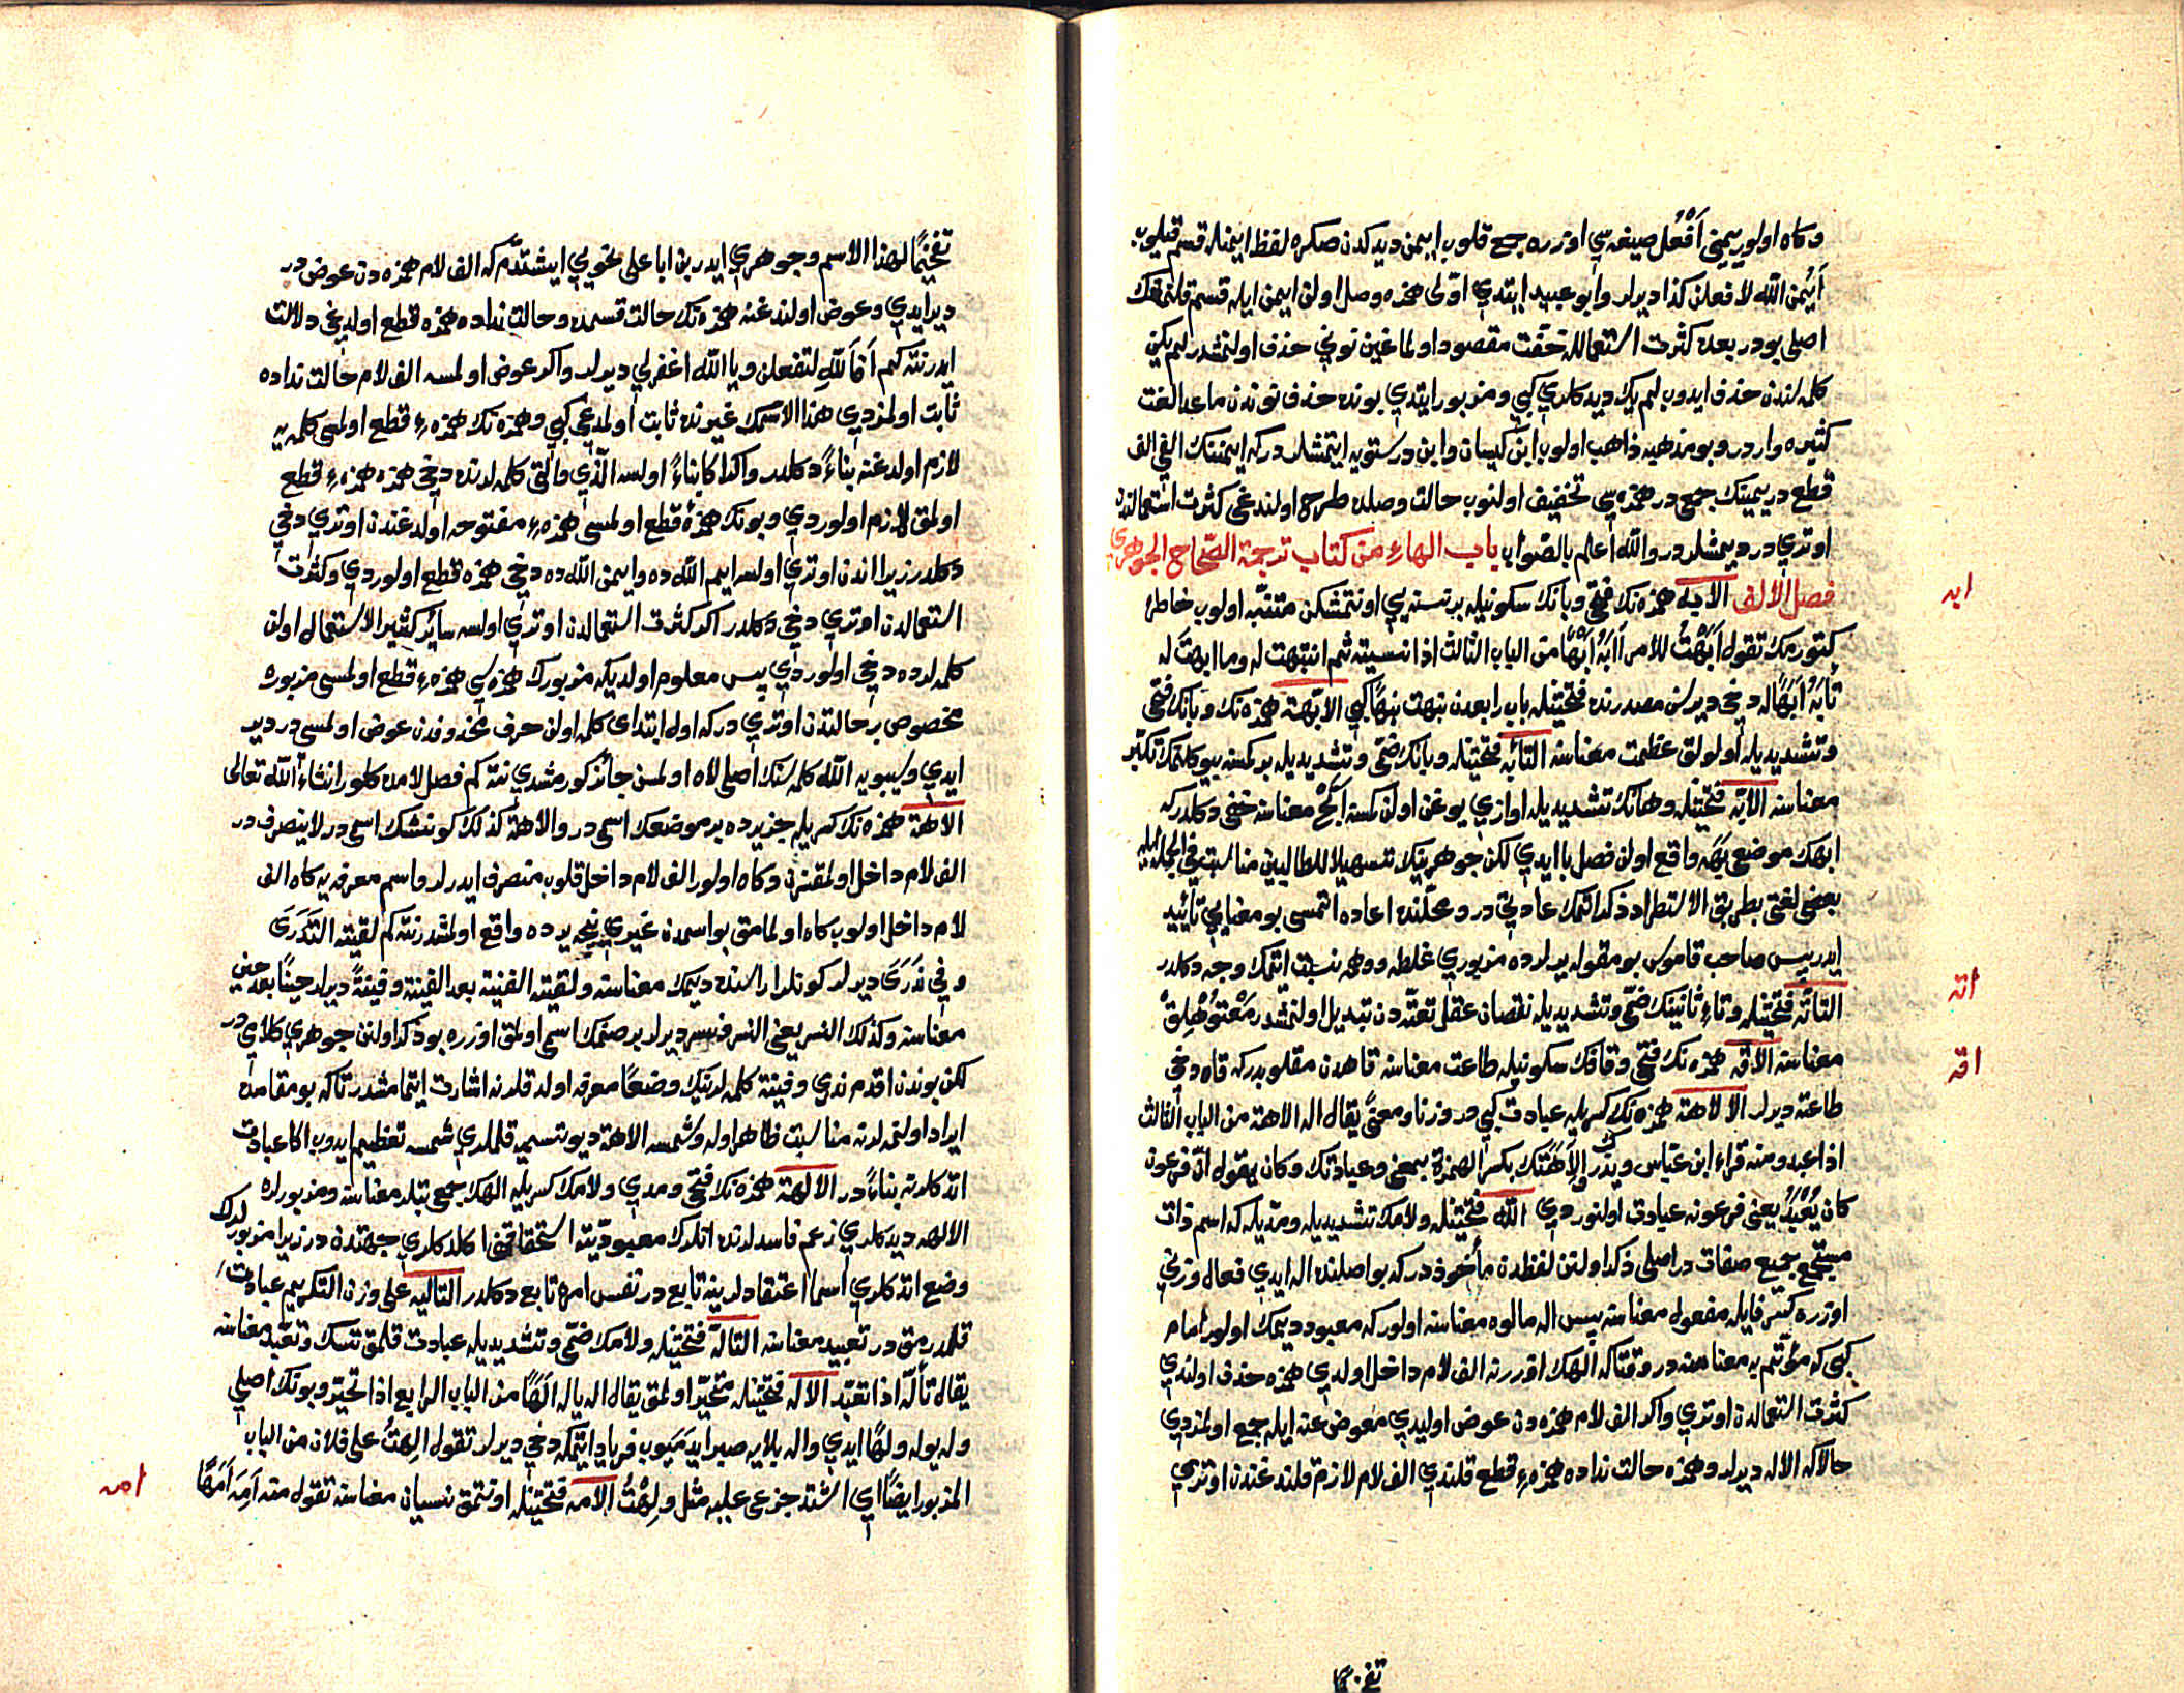 وكاه اولور يميني أفعل صيغه سي اوزره جمع قلوب ايمن ديدكدن صكره لفظ ايمنله قسم قيلوب
أيمن الله لافعلن كذا ديرلر وابو عبيد ايتدي اولى همزه وصل اولن ايمن ايله قسم قلنمغك
اصلي بودر بعده كثرت استعمالله خفت مقصود اولماغين نوني حذف اولنمشدر لم يكن
كلمه لندن حذف ايدوب لم يك ديدكلري كبي ومزبور ايتدي بونده حذف نوندن ماعدا لغت
كثيره واردر وبو مذهبه ذاهب اولوب ابن كيسان وابن درستويه ايتمشلردركه ايمننك الفي الف
قطع در يمينك جمعي در همزه سي تخفيف اولنوب حالت وصلده طرح اولندغي كثرت استعمالندن
اوتري در ديمشلردر والله أعلم بالصواب باب الهاء من كتاب ترجمة الصحاح الجوهري
فصل الالف الابه همزه نك فتحي وبانك سكونيله بر نسنه يي اونتمشكن متنبه اولوب خاطره
كتورمك تقول أبهت للامر آبه أبها من الباب الثالث اذا نسيته ثم انتبهت له وما ابهت له
تأبه أبها له دخي ديرلر مصدرنده فتحتينله باب رابعدن نبهت نبها كبي الابهة همزه نك وبانك فتحي
وتشديديله اولولق عظمت معناسنه التأبه فتحتينله وبانك ضمي وتشديديله بر كمسنه بيوكلنمك تكبر
معناسنه الابه فتحتينله وهانك تشديديله اوازي يوغن اولن كمسه ابح معناسنه خفي دكلدركه
ابهك موضعي بهه واقع اولن فصل با ايدي لكن جوهرينك تسهيلا للطالبين مناسبت في الجمله ايله
بعض لغتي بطريق الاستطراد ذكر اتمك عادتي در ومحلنده اعاده اتمسي بو معنايي تأييد
ايدر پس صاحب قاموس بو مقوله يرلرده مزبوري غلطه ووهمه نسبت اتمك وجه دكلدر
التأته فتحتينله وتاء ثانينك ضمي وتشديديله نقصان عقل تعتهدن تبديل اولنمشدر
معناسنه الاقه همزه نك فتحي وقافك سكونيله طاعت معناسنه قاهدن مقلوبدركه قاه دخي
طاعته ديرلر الالاهة همزه نك كسريله عبادت كبي در وزنا ومعنى يقال اله الاهة من الباب الثالث
اذا عبد ومنه قراءة ابن عباس ويذرك وإلاهتك بكسر الهمزة بمعنى وعبادتك وكان يقول ان فرعون
كان يعبد يعني فرعونه عبادت اولنوردي الله فتحتينله ولامك تشديديله ومديله كه اسم ذات
مستجمع جميع صفات در اصلي ذكر اولنن لفظدن مأخوذدركه بو اصلنده اله ايدي فعال وزني
اوزره كسر فايله مفعول معناسنه پس اله مالوه معناسنه اولوركه معبود ديمك اولور امام
كبي كه مؤتم به معناسنه در وقتاكه الهك اوزرينه الف لام داخل اولدي همزه حذف اولندي
كثرت استعمالدن اوتري واكر الف لام همزه دن عوض اوليدي معوض عنه ايله جمع اولمزدي
حالا كه الاله ديرلر وهمزه حالت نداده همزه قطع قلندي الف لام لازم قلندغندن اوتري
ابه
اته
اقه
تفخيما
تفخيما لهذا الاسم وجوهري ايدر بن ابا علي نحويي ايشتدم كه الف لام همزه دن عوض در
دير ايدي وعوض اولندغنه همزه نك حالت قسمده وحالت نداده همزه قطع اولدغي دلالت
ايدر نته كم أفألله لتفعلن ويا الله اغفرلي ديرلر واكر عوض اولمسه الف لام حالت نداده
ثابت اولمزدي هذا الاسمك غيرنده ثابت اولمدغي كبي وهمزه نك همزهء قطع اولمسي كلمه يه
لازم اولدغنه بناء دكلدر واكا بناء اولسه الذي والتي كلمه لرنده دخي همزه همزهء قطع
اولمق لازم اولوردي وبونك همزهء قطع اولمسي همزهء مفتوحه اولدغندن اوتري دخي
دكلدر زيرا اندن اوتري اولسه ايم الله ده وايمن الله ده دخي همزه قطع اولوردي وكثرت
استعمالدن اوتري دخي دكلدر اكر كثرت استعمالدن اوتري اولسه سائر كثير الاستعمال اولن
كلمه لرده دخي اولوردي پس معلوم اولديكه مزبورك همزه سي همزهء قطع اولمسي مزبوره
مخصوص بر حالتدن اوتري دركه اول ابتداى كلمه اولن حرف محذوفدن عوض اولمسي در دير
ايدي وسيبويه الله كلمه سنك اصلي لاه اولمسن جائز كورمشدي نته كم فصل لامده كلور انشاء الله تعالى
الاهة همزه نك كسريله جزيره ده بر موضعك اسمي در والاهة كذلك كونشك اسمي در لاينصرف در
الف لام داخل اولمقسزن وكاه اولور الف لام داخل قلوب منصرف ايدرلر واسم معرفه يه كاه الف
لام داخل اولوب كاه اولمامق بو اسمدن غيري نيجه يرده واقع اولمشدر نته كم لقيته الندرى
وفي ندرى ديرلر كونلر اراسنده ديمك معناسنه ولقيته الفينة بعد الفينة وفينة ديرلر حينا بعد حين
معناسنه وكذلك النسر يعني النسر ونسر ديرلر بر صنمك اسمي اولمق اوزره بو ذكر اولنن جوهري كلامي در
لكن بوندن اقدم ندري وفينة كلمه لرينك وضعا معرفه اولدقلرنه اشارت ايتمامشدر تاكه بو مقامده
ايراد اولنمه لرنه مناسبت ظاهر اوله وشمسه الاهة ديو تسميه قلملري شمسه تعظيم ايدوب اكا عبادت
اتدكلرنه بناء در الآلهة همزه نك فتحي ومدي ولامك كسريله الهك جمعي بتلر معناسنه ومزبورلره
الاله ديدكلري زعم فاسدلرنده انلرك معبوديته استحقاقني اكلدكلري جهتدن در زيرا مزبورلرك
وضع اتدكلري اسما اعتقادلرينه تابع در نفس امره تابع دكلدر التأليه على وزن التكريم عبادت
قلدرمق در تعبيد معناسنه التأله فتحتينله ولامك ضمي وتشديديله عبادت قلمق تنسك وتعبد معناسنه
يقال تأله اذا تعبد الاله فتحتينله متحير اولمق يقال اله ياله الها من الباب الرابع اذا تحير وبونك اصلي
وله يوله ولها ايدي واله بلايه صبر ايده ميوب فرياد ايتمكه دخي ديرلر تقول الهت على فلان من الباب
المزبور ايضا اي اشتد جزعي عليه مثل ولهت الامه فتحتينله اونتمق نسيان معناسنه تقول منه أمه أمها
امه